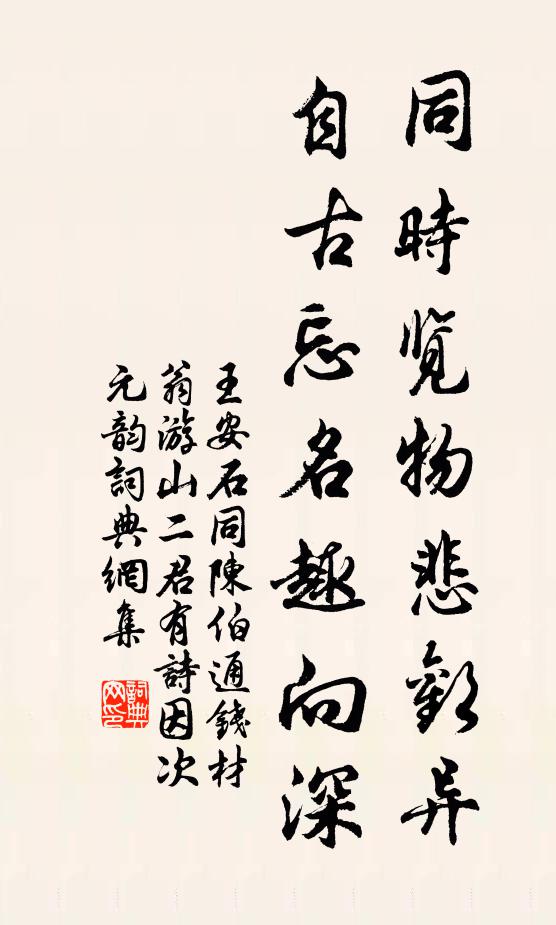 同時览物悲歡异
自古忘名趣向深
王安石同陳伯通錢材
翁游山二君有詩因次
元韵詞典網集
詞典網印